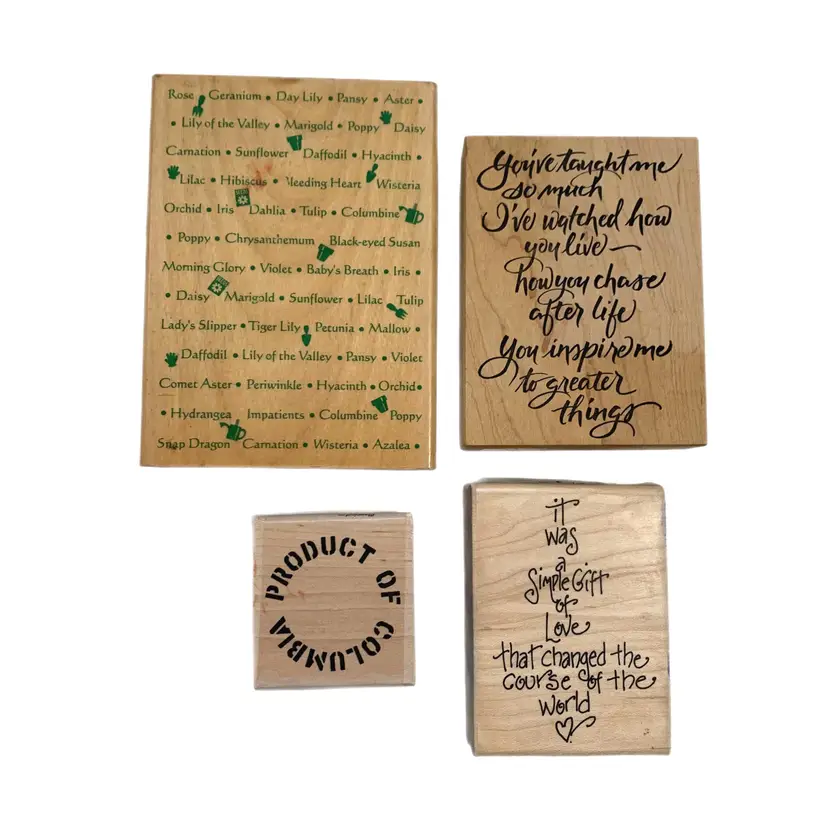 Rose Geranium • Day Lily • Pansy • Aster •
• Lily of the Valley • Marigold • Poppy Daisy
Carnation • Sunflower Daffodil • Hyacinth •
Lilac • Hibiscus • Bleeding Heart Wisteria
Orchid • Iris Dahlia • Tulip • Columbine
• Poppy • Chrysanthemum Black-eyed Susan
Morning Glory • Violet • Baby's Breath • Iris •
• Daisy Marigold • Sunflower • Lilac Tulip
Lady's Slipper • Tiger Lily Petunia • Mallow •
Daffodil • Lily of the Valley • Pansy • Violet
Comet Aster • Periwinkle • Hyacinth • Orchid •
• Hydrangea Impatients • Columbine Poppy
Snap Dragon Carnation • Wisteria • Azalea •
You've taught me
so much
I've watched how
you live—
how you chase
after life
You inspire me
to greater
things
PRODUCT OF COLUMBIA
it
was
a
Simple Gift
of
Love
that changed the
course of the
world